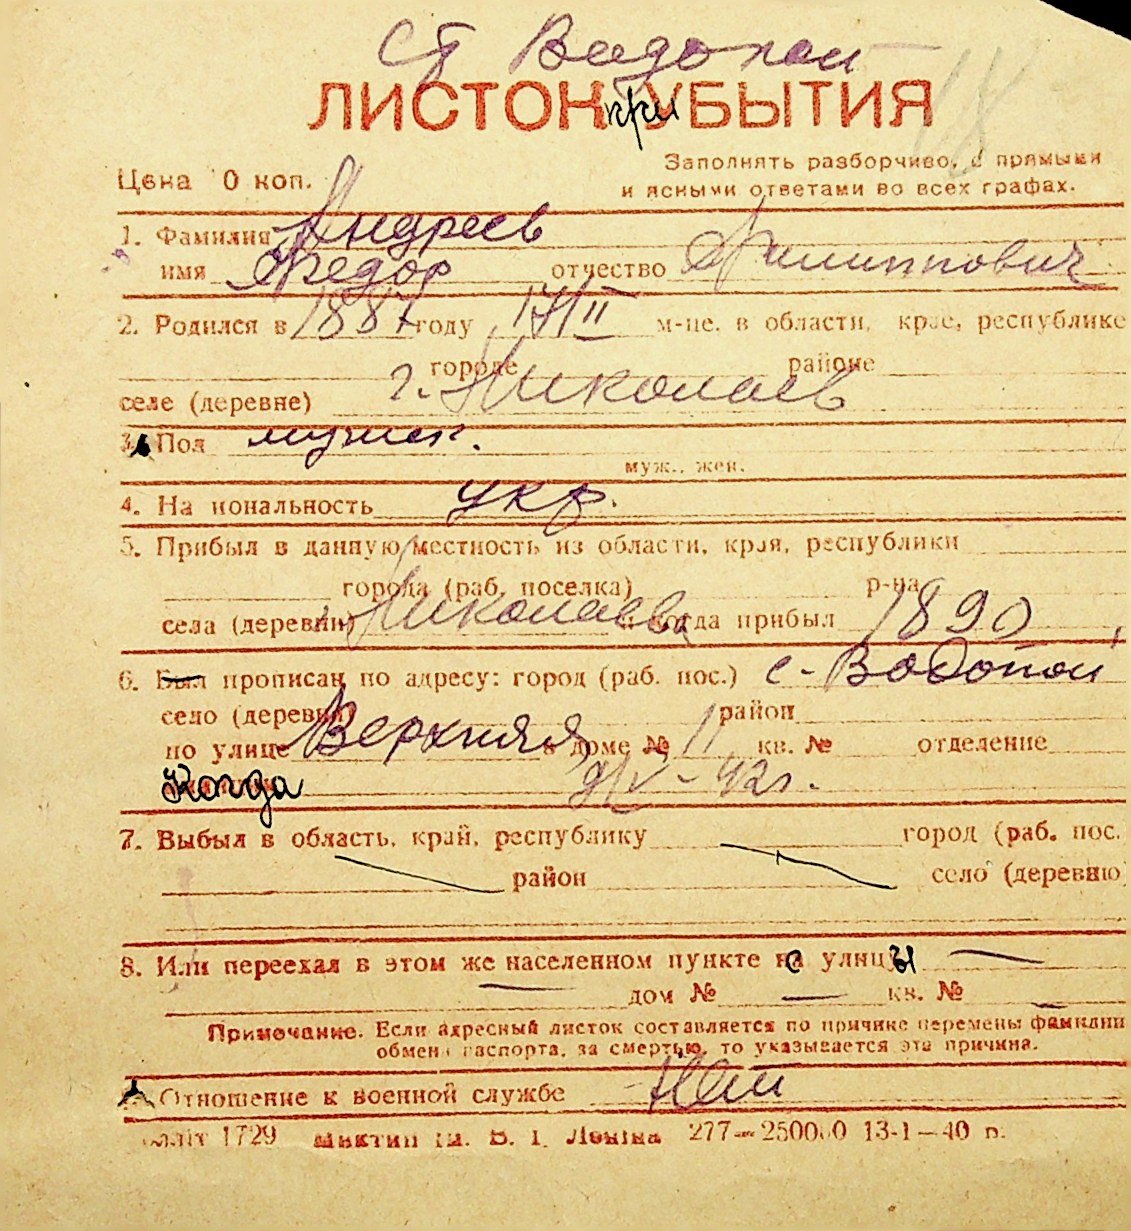 ст Водопой
ЛИСТОК при УБЫТИЯ
Заполнять разборчиво, с прямыми
Цена 0 коп.
и ясными ответами во всех графах.
1. Фамилия Андреев
имя Федор отчество Филиппович
2. Родился в 1887 году 17/II м-це. в области, крае, республике
городе районе
селе (деревне) г. Николаев
3. Пол мужск.
муж., жен.
4. На иональность укр.
5. Прибыл в данную местность из области, края, республики
города (раб. поселка) р-на
села (деревни) Николаева и когда прибыл 1890
6. Был прописан по адресу: город (раб. пос.) с-Водопой
село (деревня) район
по улице Верхняя в доме № 11 кв. № отделение
Когда 9/V-42г.
7. Выбыл в область, край, республику город (раб. пос.
район село (деревню
8. Или переехал в этом же населенном пункте с улицы
дом № кв. №
Примечание. Если адресный листок составляется по причине перемены фамилии
обмена паспорта, за смертью, то указывается эта причина.
Отношение к военной службе Нет
1729 В. І. Леніна 277—250000 13-1—40 р.